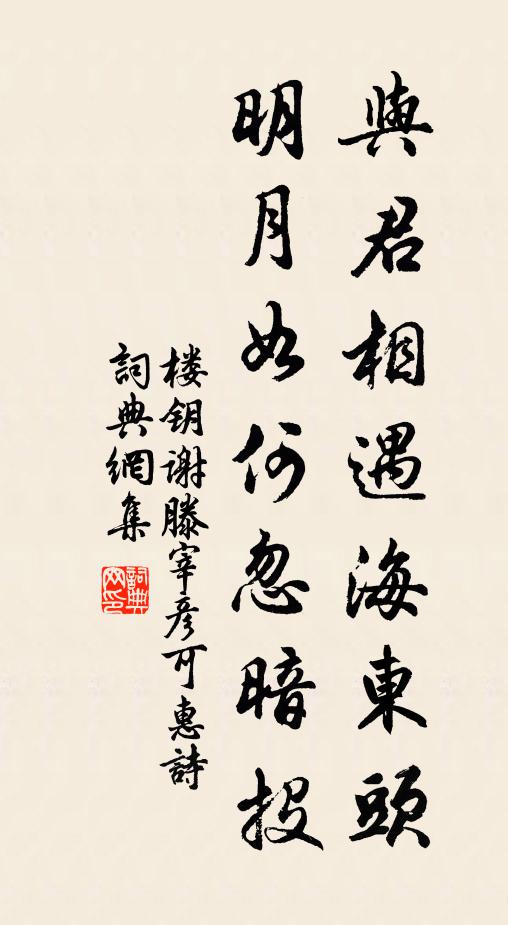 與君相遇海東頭
明月如何忽暗投
楼钥谢滕宰彦可惠詩
詞典網集
詞典
网印